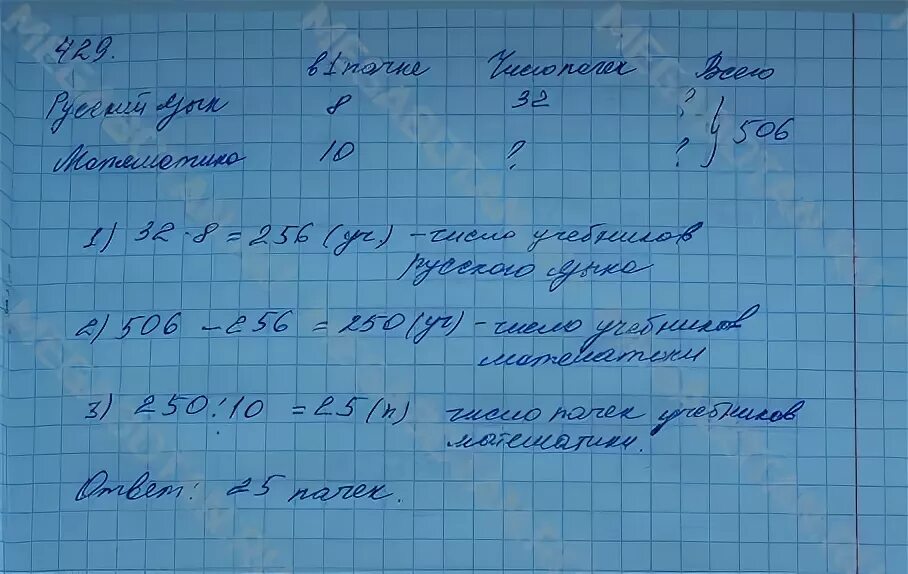 429.
в 1 пачке Число пачек Всего
Русский язык 8 32 ? } 506
Математика 10 ? ?
1) 32 · 8 = 256 (уч) – число учебников
русского языка
2) 506 – 256 = 250 (уч) – число учебников
математики
3) 250 : 10 = 25 (п) число пачек учебников
математики.
Ответ: 25 пачек.